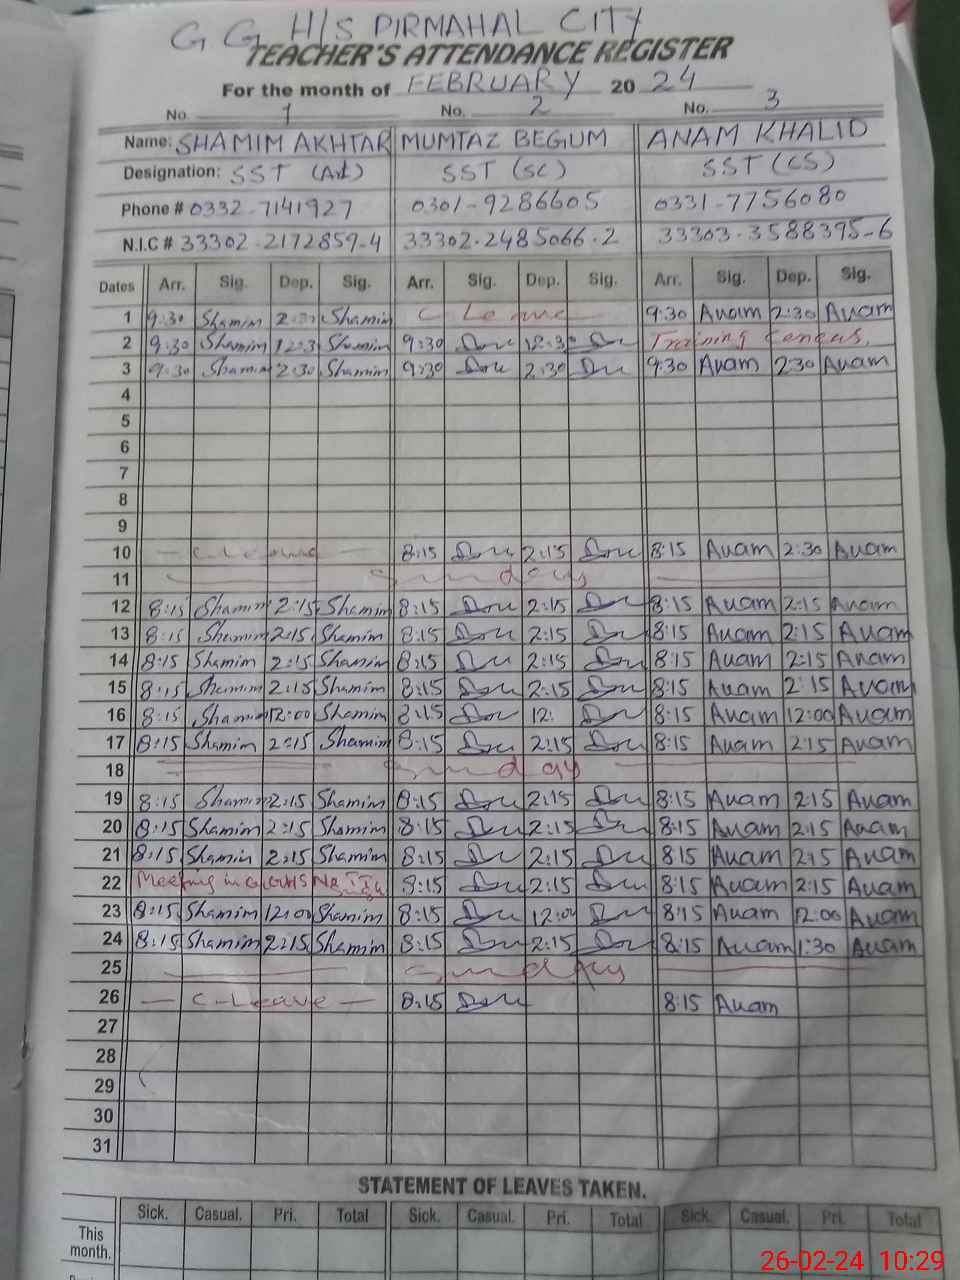 G G H/S PIRMAHAL CITY
TEACHER'S ATTENDANCE REGISTER
For the month of FEBRUARY 2024
No. 1 No. 2 No. 3
Name: SHAMIM AKHTAR MUMTAZ BEGUM ANAM KHALID
Designation: SST (Art) SST (SC) SST (CS)
Phone # 0332-7141927 0301-9286605 0331-7756080
N.I.C # 33302-2172859-4 33302-2485066-2 33303-3588395-6
Dates Arr. Sig. Dep. Sig. Arr. Sig. Dep. Sig. Arr. Sig. Dep. Sig.
1 9:30 Shamim 2:30 Shamim C Leave 9:30 Anam 2:30 Anam
2 9:30 Shamim 12:3 Shamim 9:30 12:30 Training Census.
3 9:30 Shamim 2:30 Shamim 9:30 2:30 9:30 Anam 2:30 Anam
4
5
6
7
8
9
10 C Leave 8:15 2:15 8:15 Anam 2:30 Anam
11 Sunday
12 8:15 Shamim 2:15 Shamim 8:15 2:15 8:15 Anam 2:15 Anam
13 8:15 Shamim 2:15 Shamim 8:15 2:15 8:15 Anam 2:15 Anam
14 8:15 Shamim 2:15 Shamim 8:15 2:15 8:15 Anam 2:15 Anam
15 8:15 Shamim 2:15 Shamim 8:15 2:15 8:15 Anam 2:15 Anam
16 8:15 Shamim 12:00 Shamim 8:15 12: 8:15 Anam 12:00 Anam
17 8:15 Shamim 2:15 Shamim 8:15 2:15 8:15 Anam 2:15 Anam
18 Sunday
19 8:15 Shamim 2:15 Shamim 8:15 2:15 8:15 Anam 2:15 Anam
20 8:15 Shamim 2:15 Shamim 8:15 2:15 8:15 Anam 2:15 Anam
21 8:15 Shamim 2:15 Shamim 8:15 2:15 8:15 Anam 2:15 Anam
22 Meeting in GGHS No 8:15 2:15 8:15 Anam 2:15 Anam
23 8:15 Shamim 12:00 Shamim 8:15 12:00 8:15 Anam 12:00 Anam
24 8:15 Shamim 2:15 Shamim 8:15 2:15 8:15 Anam 1:30 Anam
25 Sunday
26 C-Leave 8:15 8:15 Anam
27
28
29
30
31
STATEMENT OF LEAVES TAKEN.
Sick. Casual. Pri. Total Sick. Casual. Pri. Total Sick. Casual. Pri. Total
This
month.
26-02-24 10:29